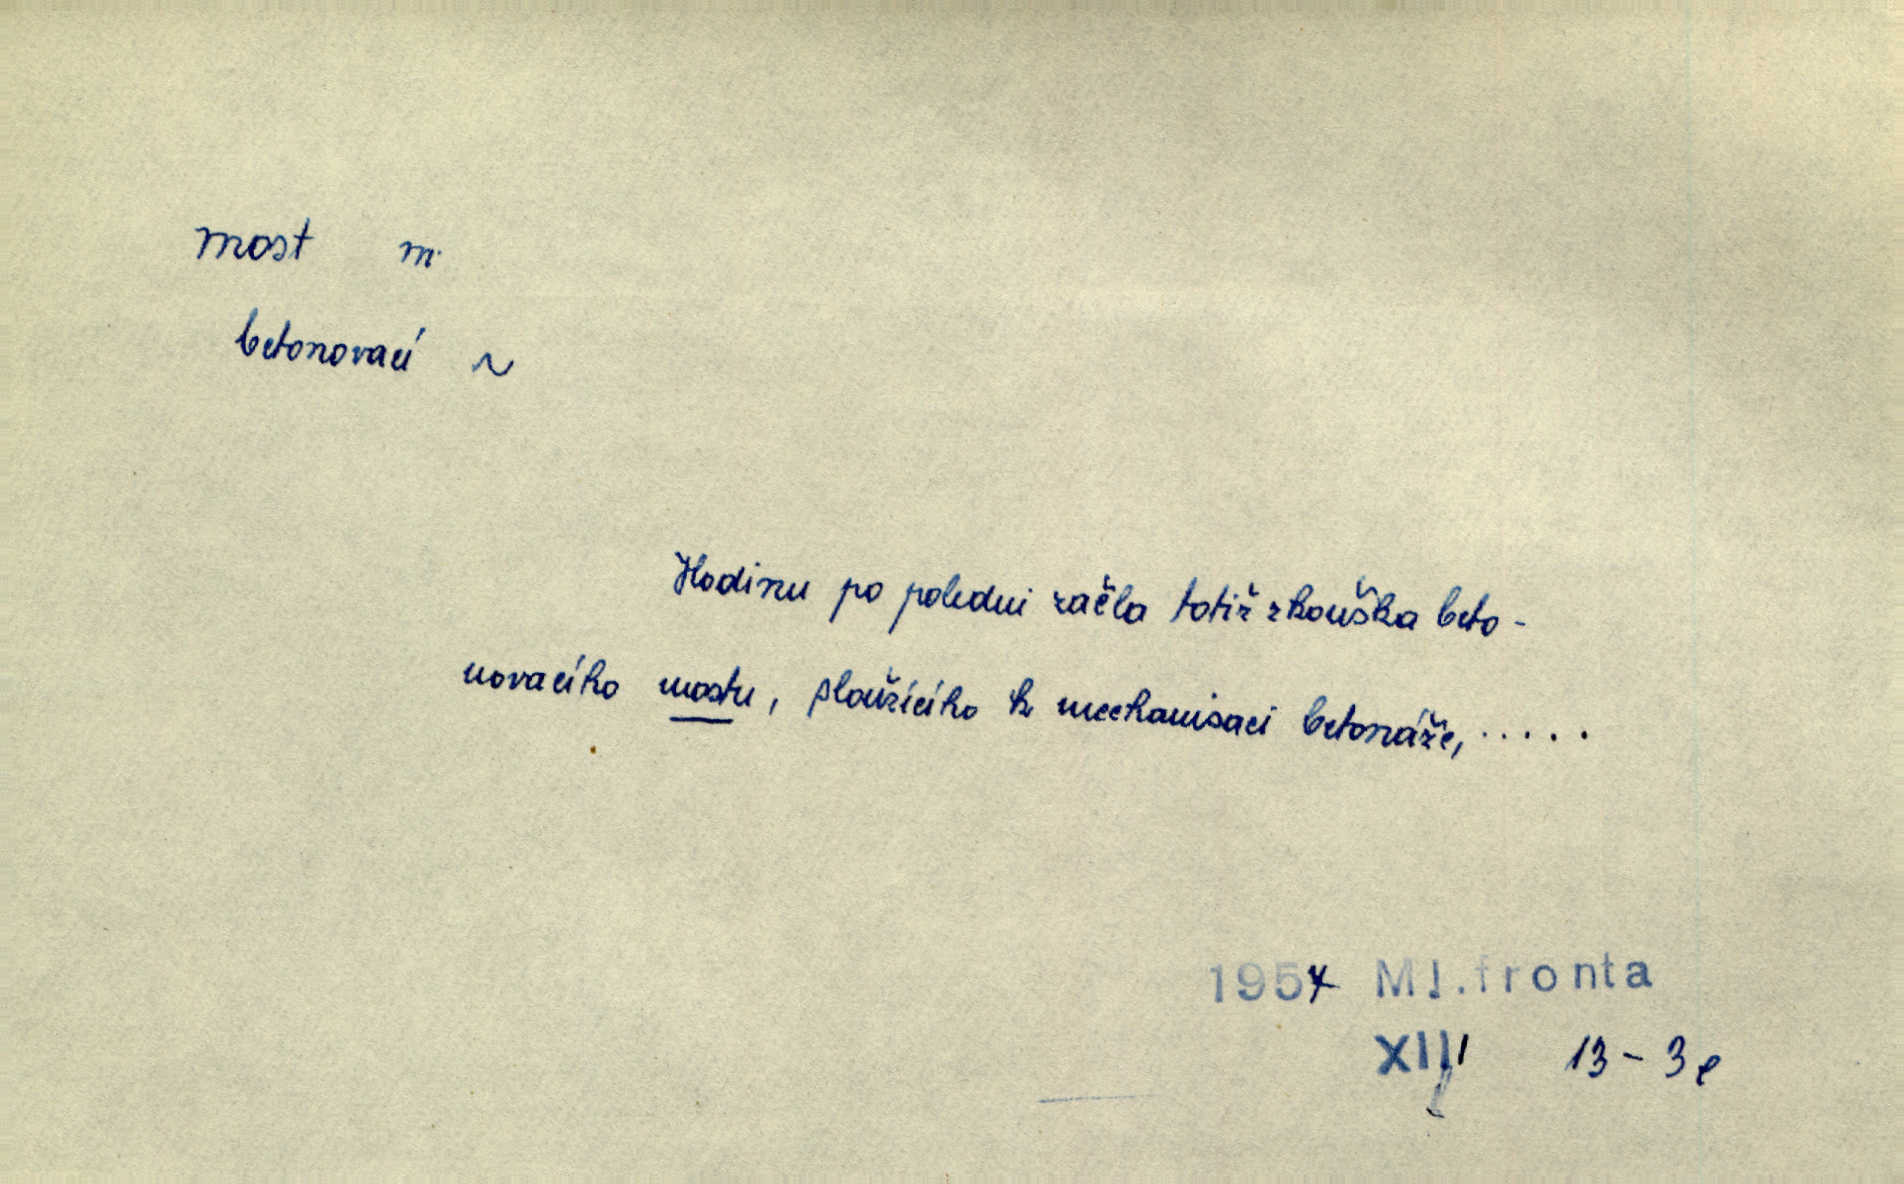 most m.
betonovací ~
Hodinu po poledni začla totiž zkouška beto-
novacího mostu, sloužícího k mechanisaci betonáže, .....
1957 Ml. fronta
XIII 13 - 3e